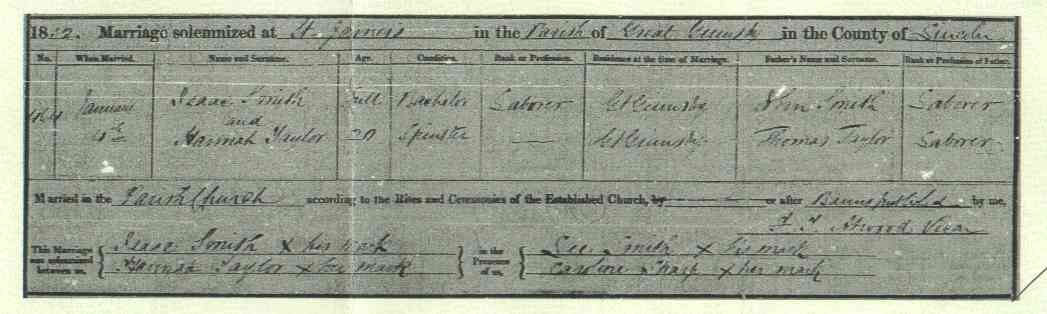 18 2. Marriage solemnized at St. James's in the Parish of Great Grimsby in the County of Lincoln
No. When Married. Name and Surname. Age. Condition. Rank or Profession. Residence at the time of Marriage. Father's Name and Surname. Rank or Profession of Father.
January Isaac Smith Full Bachelor Laborer Gt Grimsby John Smith Laborer
and
Hannah Taylor 20 Spinster — Gt Grimsby Thomas Taylor Laborer
Married in the Parish Church according to the Rites and Ceremonies of the Established Church, by or after Banns published by me,
Attwood Vicar
This Marriage was solemnized between us, { Isaac Smith x his mark } in the Presence of us, { Smith x his mark
Hannah Taylor x her mark Caroline Sharp x her mark